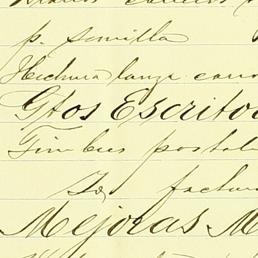 p. semilla
Hechura lanza carro
Gtos Escrito
Timbres postal
Id, factur
Mejoras M